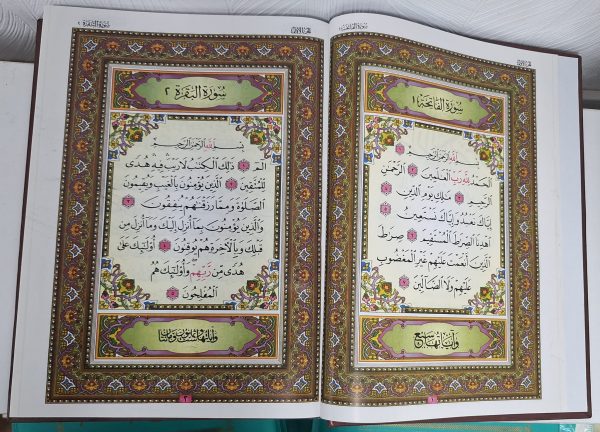 سورة الفاتحة
سورة الفاتحة ١
بسم الله الرحمن الرحيم
الحمد لله رب العلمين ٢ الرحمن
الرحيم ٣ ملك يوم الدين ٤
إياك نعبد وإياك نستعين ٥
اهدنا الصرط المستقيم ٦ صرط
الذين أنعمت عليهم غير المغضوب
عليهم ولا الضالين ٧
وآياتها سبع
١
سورة البقرة ٢
سورة البقرة ٢
بسم الله الرحمن الرحيم
الم ١ ذلك الكتب لا ريب فيه هدى
للمتقين ٢ الذين يؤمنون بالغيب ويقيمون
الصلوة ومما رزقنهم ينفقون ٣
والذين يؤمنون بما أنزل إليك وما أنزل من
قبلك وبالآخرة هم يوقنون ٤ أولئك على
هدى من ربهم وأولئك هم
المفلحون ٥
٢